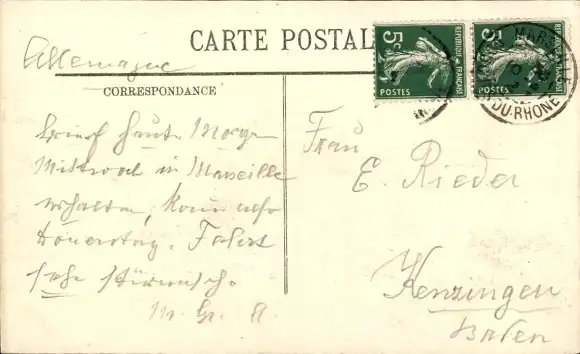 Allemagne
CARTE POSTALE
CORRESPONDANCE
5c
REPUBLIQUE FRANÇAISE
POSTES
5c
REPUBLIQUE FRANÇAISE
POSTES
MARSEILLE
DU-RHONE
Brief heute Morgen
Mittwoch in Marseille
erhalten, komme
Donnerstag. Fahrt
sehr stürmisch.
M. Gr.
Frau
E. Rieder
Kenzingen
Baden